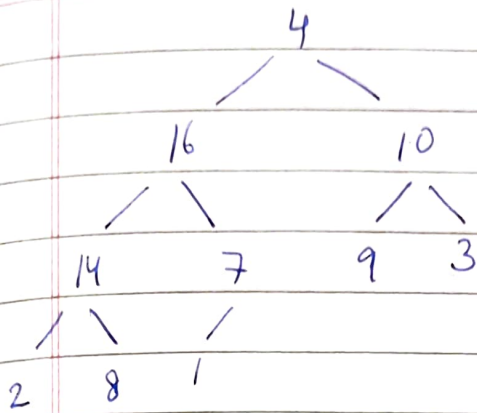 4
16 10
14 7 9 3
2 8 1